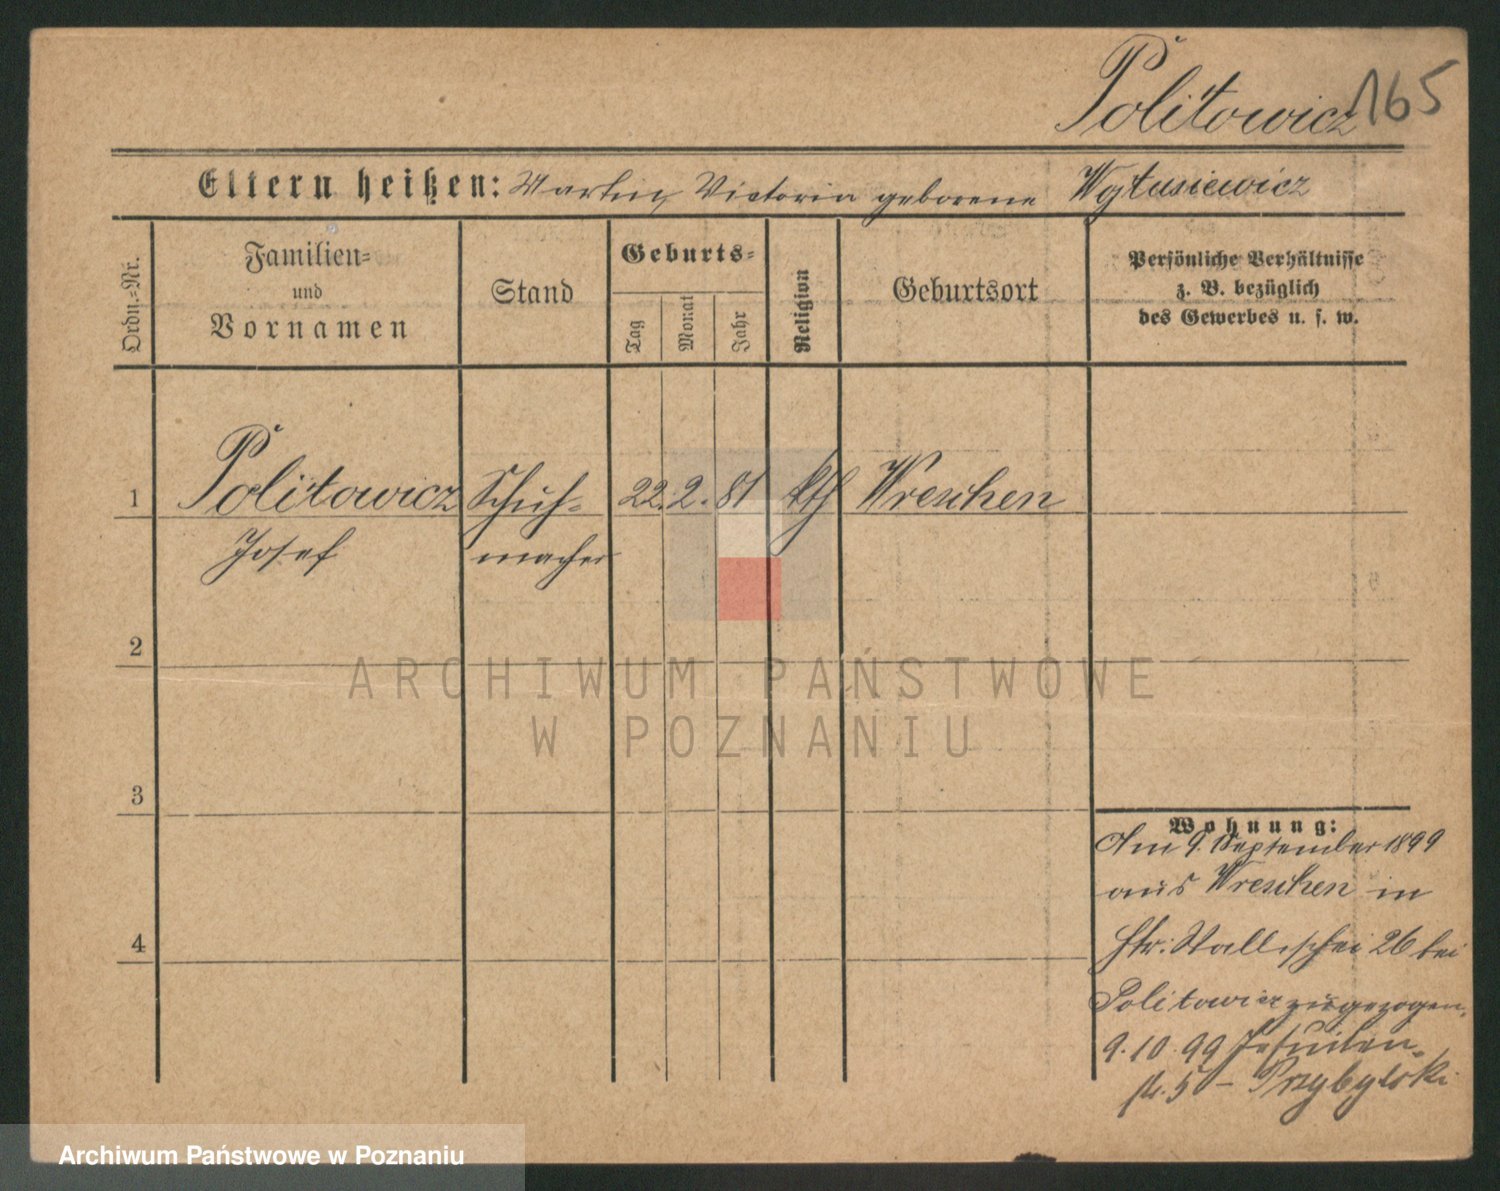 Politowicz 165
Eltern heißen: Martin, Victoria geborene Wojtusiewicz
Ordn.=Nr.
Familien=
und
Vornamen
Stand
Geburts=
Tag
Monat
Jahr
Religion
Geburtsort
Persönliche Verhältnisse
z. B. bezüglich
des Gewerbes u. s. w.
1 Politowicz Schuh= 22. 2. 81 kth Wreschen
Josef macher
2
ARCHIWUM PAŃSTWOWE
W POZNANIU
3
Wohnung:
Am 9. September 1899
aus Wreschen in
4
Str: Wallischei 26 bei
Politowicz zugezogen.
9.10.99 Jesuiten-
str. 5 – Przybylski
Archiwum Państwowe w Poznaniu